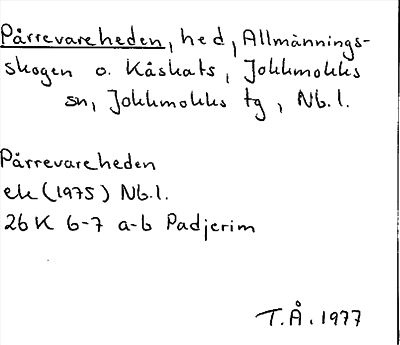 Pårrevareheden, hed, Allmännings-
skogen o. Kåskats, Jokkmokks
sn, Jokkmokks tg, Nb.l.
Pårrevareheden
ek (1975) Nb.l.
26K 6-7 a-b Padjerim
T.Å. 1977